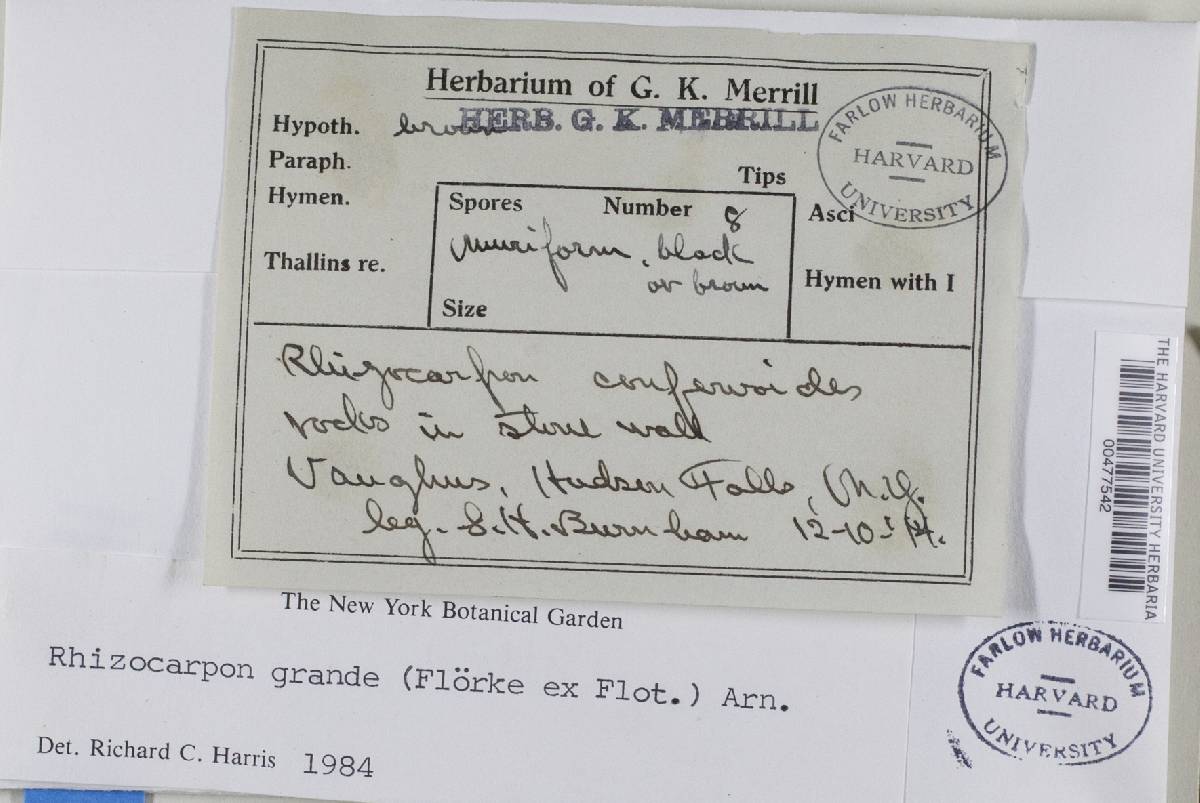 Herbarium of G. K. Merrill
HERB. G. K. MERRILL
Hypoth. brown
Paraph.
Tips
Hymen.
Spores Number 8
Asci
muriform, black
or brown
Thallins re.
Hymen with I
Size
Rhizocarpon confervoides
rocks in stone wall
Vaughns, Hudson Falls, N.Y.
leg. S.H. Burnham 12-10-14.
FARLOW HERBARIUM
HARVARD
UNIVERSITY
THE HARVARD UNIVERSITY HERBARIA
00477542
The New York Botanical Garden
Rhizocarpon grande (Flörke ex Flot.) Arn.
Det. Richard C. Harris 1984
FARLOW HERBARIUM
HARVARD
UNIVERSITY